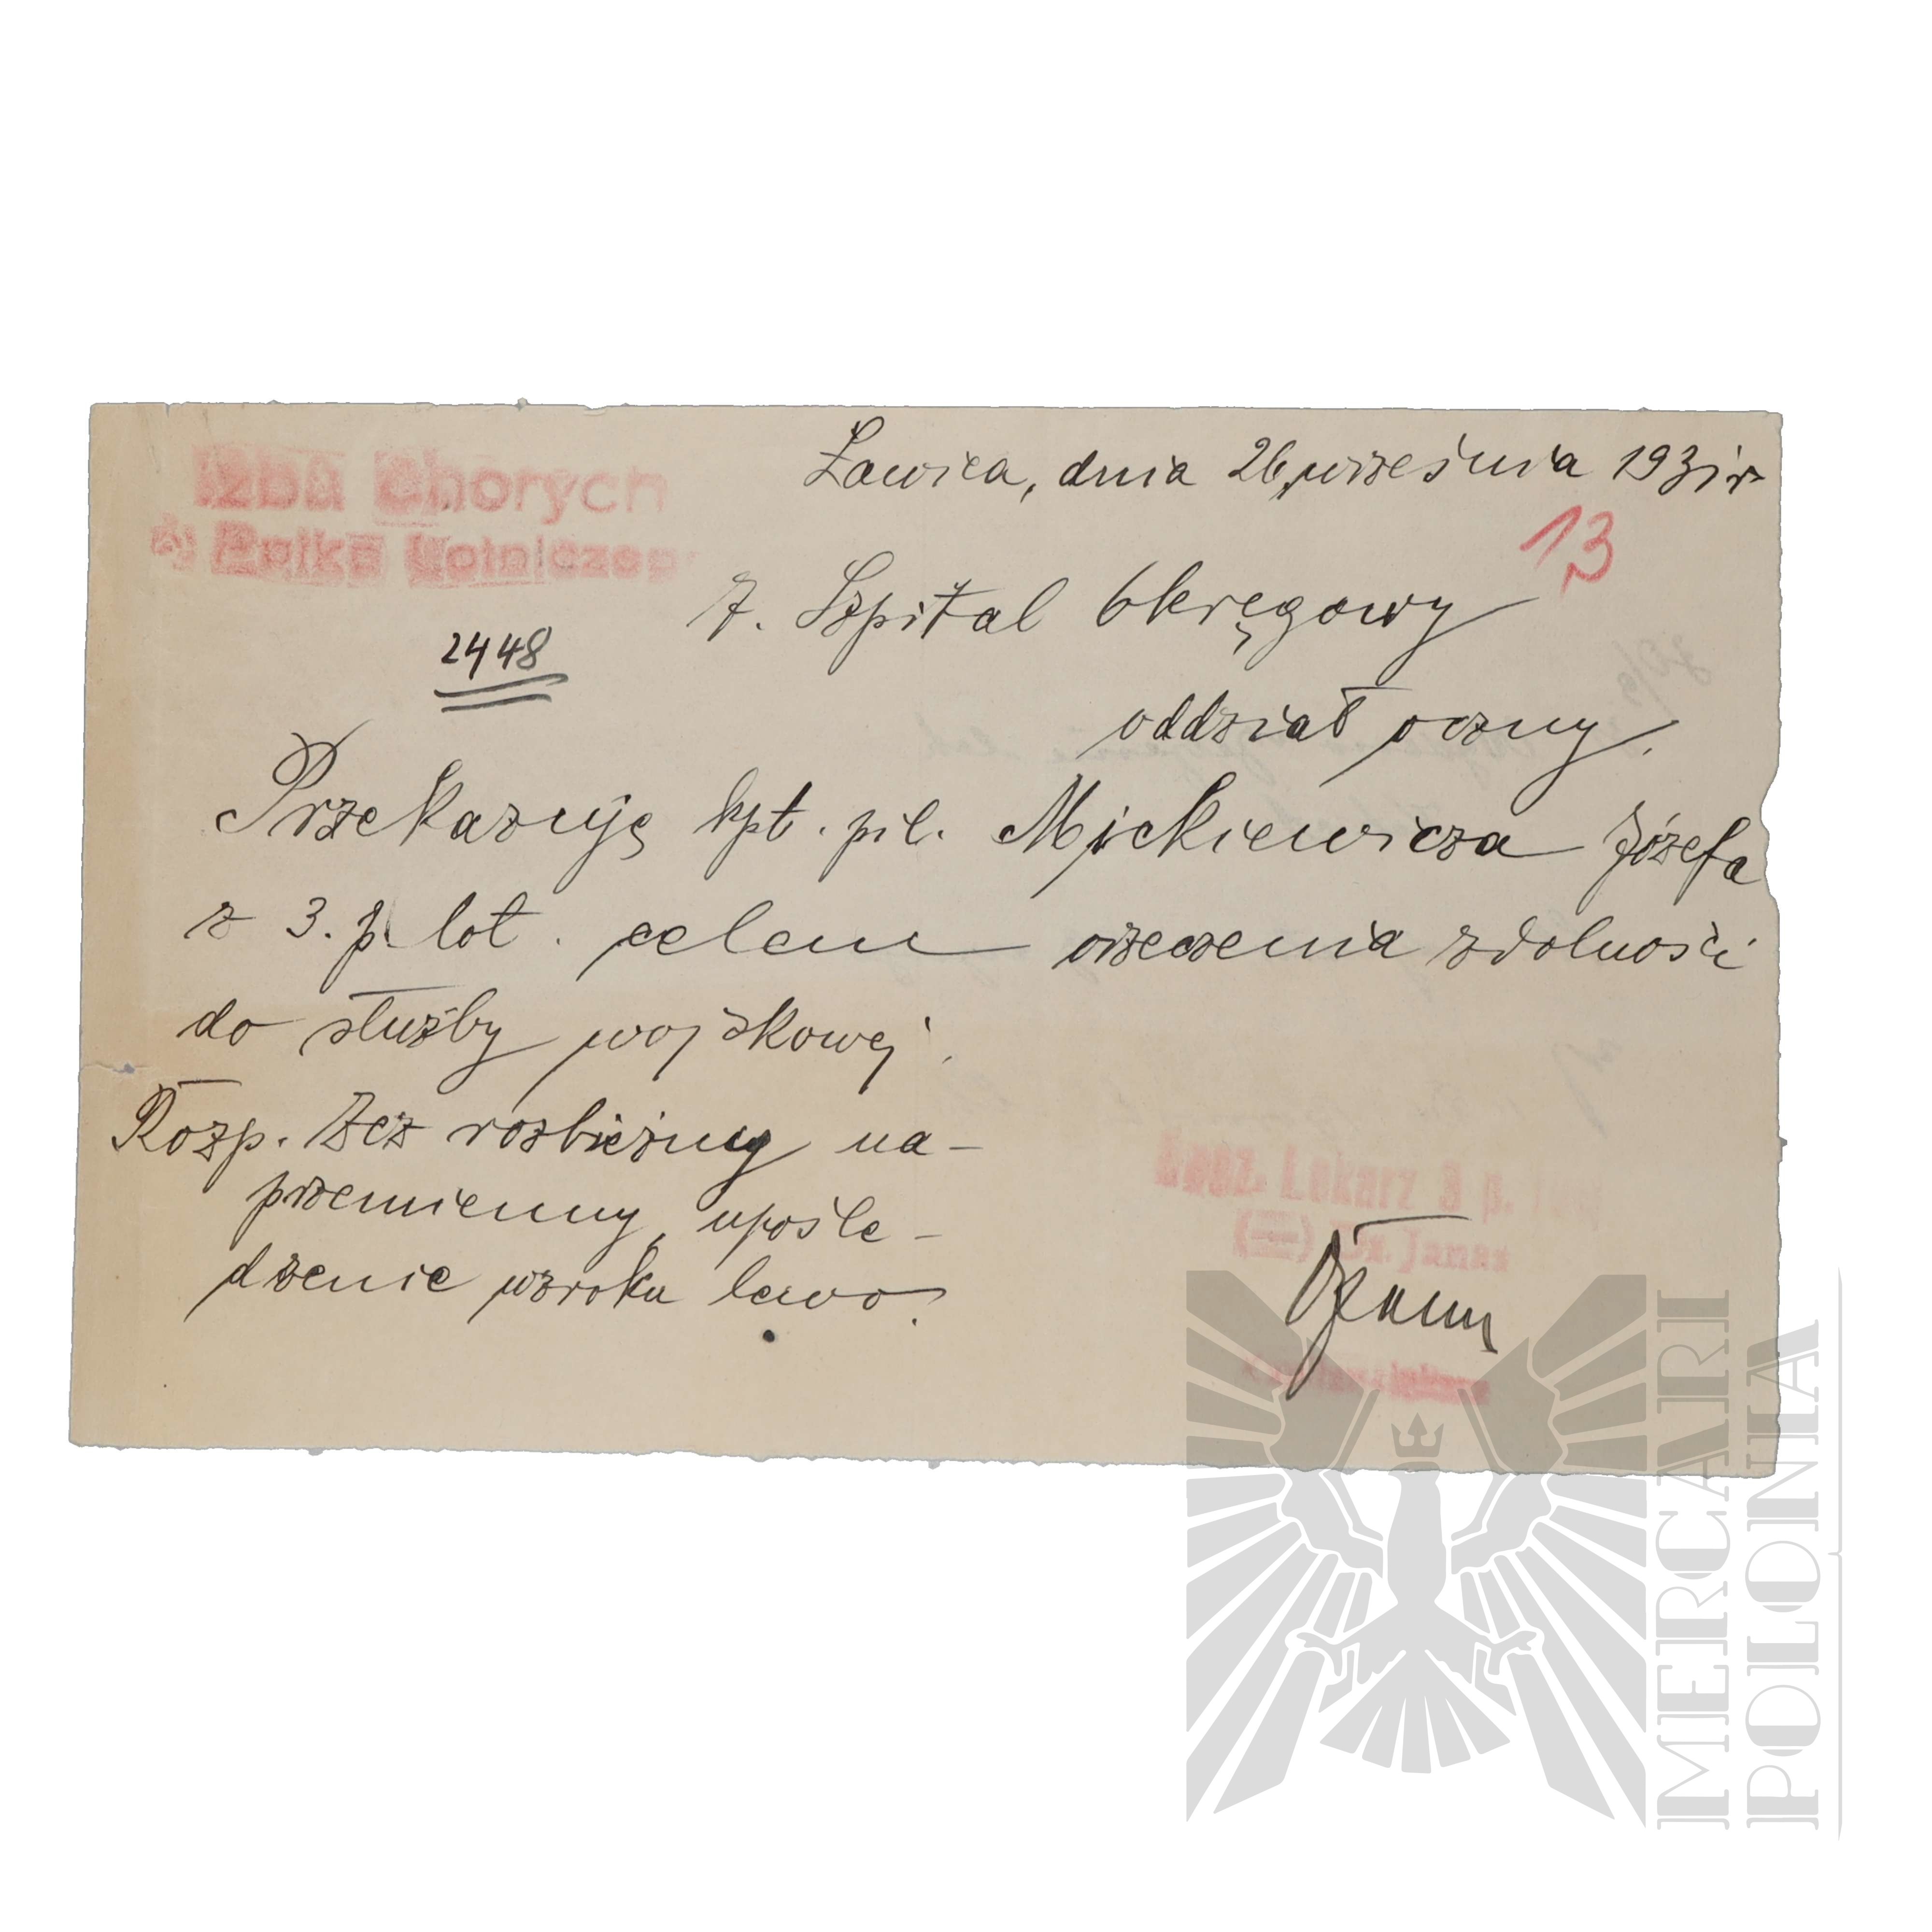 Izba Chorych
3 Pułku Lotniczego
Ławica, dnia 26 września 1931 r
13
7. Szpital Okręgowy
2448
oddział oczny.
Przekazuję kpt. pil. Mickiewicza Józefa
z 3. p. lot. celem orzeczenia zdolności
do służby wojskowej.
Rozp. Zez rozbieżny na-
przemienny, upośle-
dzenie wzroku lewo.
Lekarz 3 p.
Dr. Janas
MERCARI
POLONIA